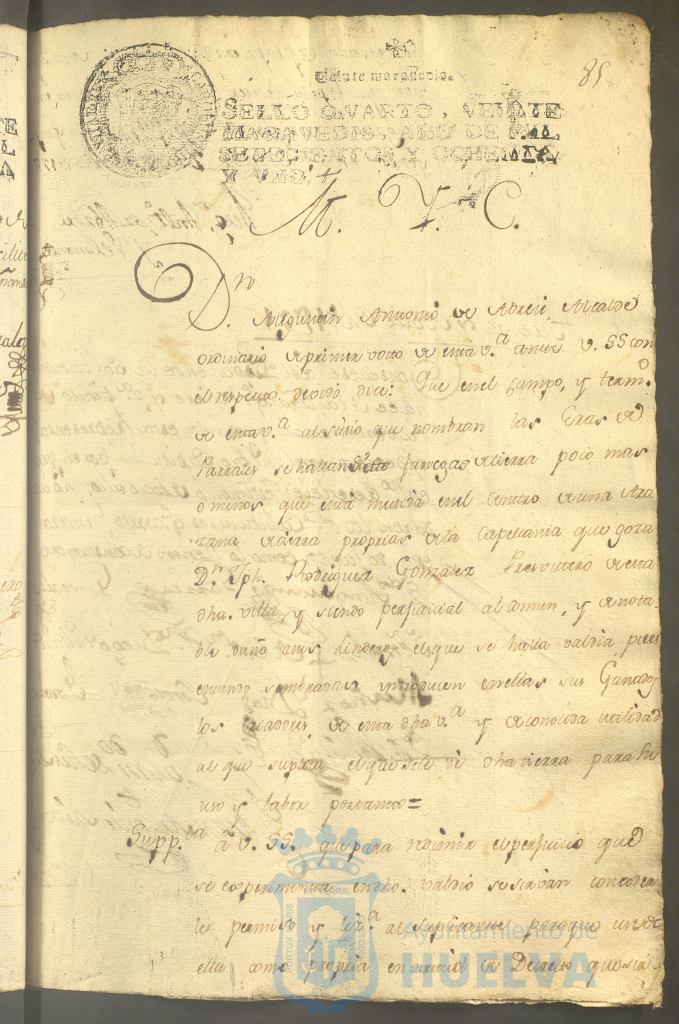 85
Veinte maravedis.
SELLO QVARTO, VEINTE
MARAVEDIS, AÑO DE MIL
SETECIENTOS Y OCHENTA
Y VNO.
M. Y. C.
Dn
D. Agustin Antonio de Abreu, Alcalde
ordinario de primer voto de esta v.ª ante V. SS con
el respecto devido dice: Que en el Campo, y term.º
de esta v.ª al sitio que nombran las Eras de
Parrales se hallan fanegas de tierra poco mas
o menos que esta metida en el Centro de una
de tierra proprias de la Capellania que goza
Dn. Jph. Rodriguez Gonzalez Presvitero de esta
dha. villa, y siendo perjuicial al comun, y de nota-
ble daño a sus Linderos, el que se halla valdia pues
estando sembradas introducen en ellas sus Ganados
los criadores de esta dha v.ª y de conocida utilidad
al que suplica el que se le dè dha tierra para su
uso y labor portanto=
Supp.ca à V. SS. que para redimir el perjuicio que
se experimenta en dho. valdio se sirvan conceder-
le permiso y liz.ª al Suplicante para que use de
ella como propria en virtud de Decreto que
Ayuntamiento de
HUELVA